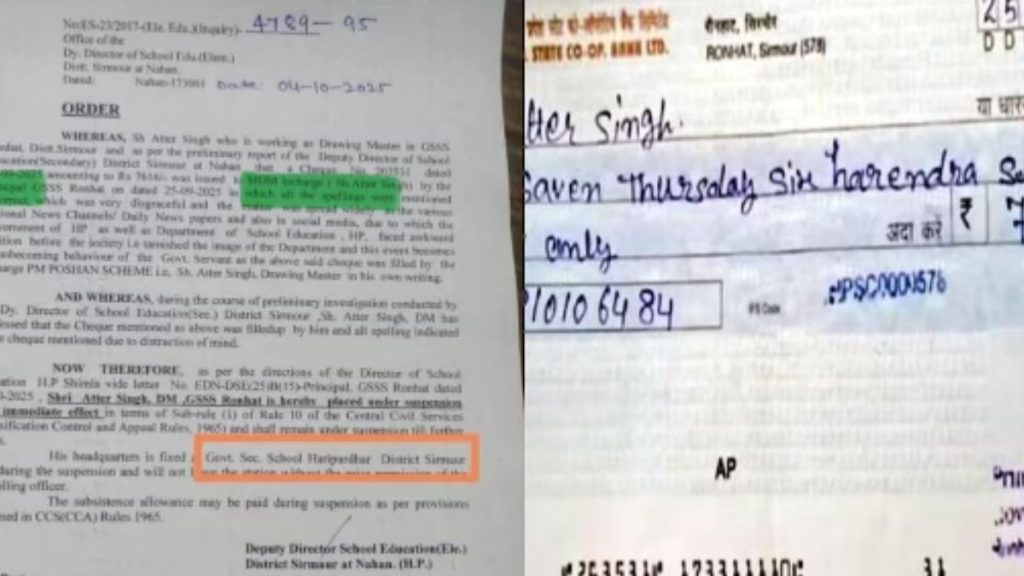 No:ES-23/2017-(Ele. Edu.)(Inquiry)- 4789-95
Office of the
Dy. Director of School Edu.(Elem.)
Distt. Sirmour at Nahan.
Dated: Nahan-173001 Date: 04-10-2025
ORDER
WHEREAS, Sh. Atter Singh who is working as Drawing Master in GSSS
Distt.Sirmour and as per the preliminary report of the Deputy Director of School
(Secondary) District Sirmour at Nahan that a Cheque No 263531 dated
amounting to Rs 7616/- was issued MDM Incharge ( Sh. Atter Singh) by the
GSSS Ronhat on dated 25-09-2025 in which all the spellings were mentioned
which was very disgraceful and the the various
News Channels/ Daily News papers and also in social media, due to which the
of HP as well as Department of School Education , HP, faced awkward
before the society i.e tarnished the image of the Department and this event becomes
unbecoming behaviour of the Govt. Servant as the above said cheque was filled by the
PM POSHAN SCHEME i.e, Sh. Atter Singh, Drawing Master in his own writing.
AND WHEREAS, during the course of preliminary investigation conducted by
Dy. Director of School Education(Sec.) District Sirmour ,Sh. Atter Singh, DM has
that the Cheque mentioned as above was filledup by him and all spelling indicated
cheque mentioned due to distraction of mind.
NOW THEREFORE, as per the directions of the Director of School
H.P Shimla vide letter No. EDN-DSE(25)B(15)-Principal, GSSS Ronhat dated
-2025 , Shri Atter Singh, DM ,GSSS Ronhat is hereby placed under suspension
immediate effect in terms of Sub-rule (1) of Rule 10 of the Central Civil Services
Control and Appeal Rules, 1965) and shall remain under suspension till further
His headquarters is fixed Govt. Sec. School Haripurdhar District Sirmaur
during the suspension and will not the station without the
officer.
The subsistence allowance may be paid during suspension as per provisions
in CCS(CCA) Rules 1965.
Deputy Director School Education(Ele.)
District Sirmaur at Nahan. (H.P.)
STATE CO-OP. BANK LTD.
रोनहाट, सिरमौर
RONHAT, Sirmour (578)
2 5
D D
tter Singh.
या धारक
Saven Thursday Six harendra
अदा करें ₹ 7
only
10106484
IFS Code
HPSC0000576
AP
263531 31